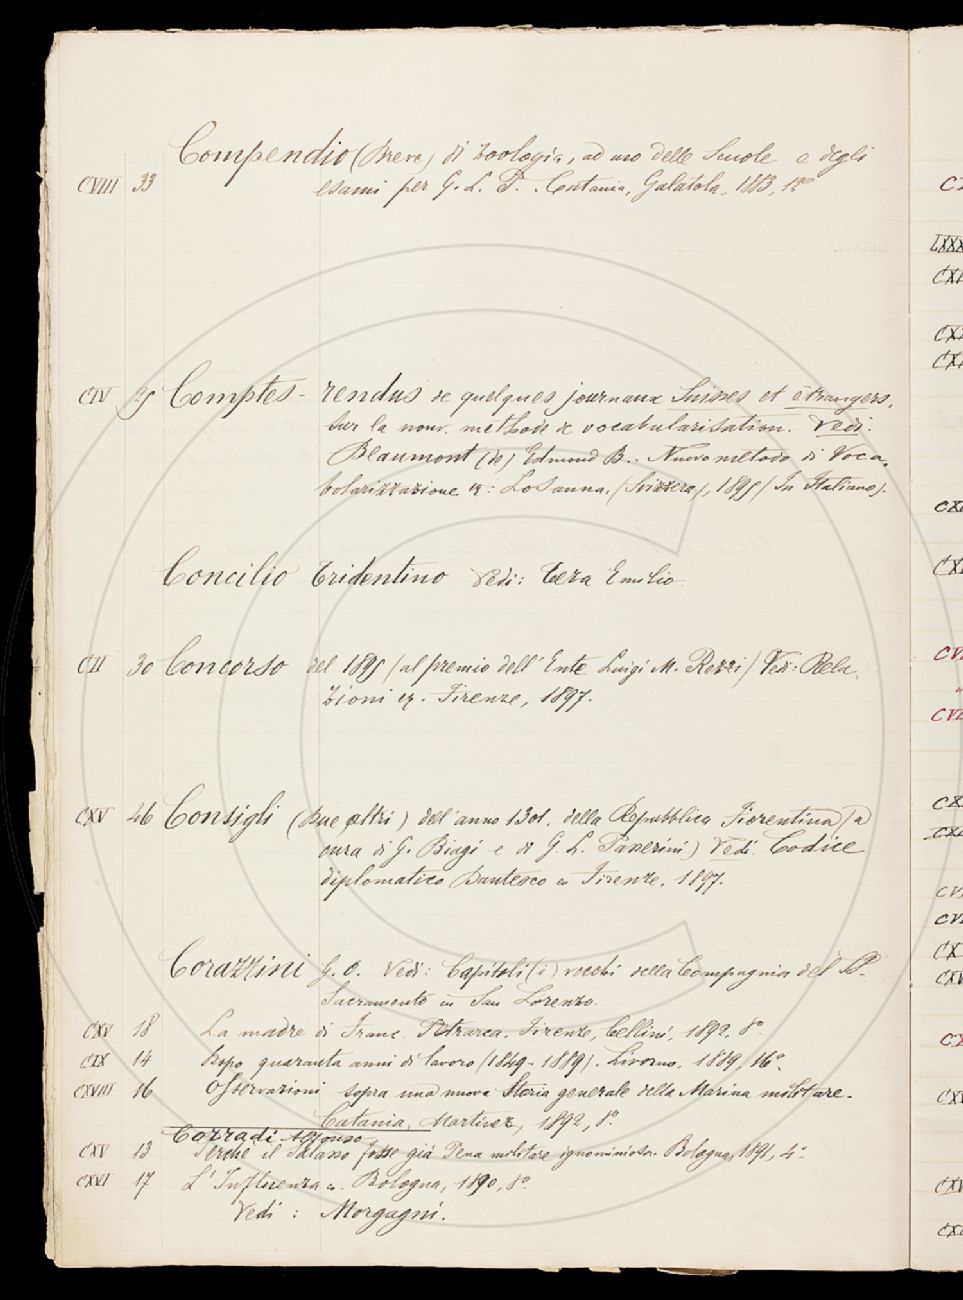 Compendio (Breve) di Zoologia, ad uso delle Scuole e degli
CVIII 33 esami per G. L. P. Catania, Galatola, 1883, 12°
CIV Comptes-rendus de quelques journaux Suisses et étrangers,
sur la nouv. méthode de vocabularisation. Vedi:
Beaumont (de) Edmond B.. Nuovo metodo di Voca-
bolarizzazione Losanna, (Svizzera), 1895 (In Italiano).
Concilio Tridentino Vedi: Teza Emilio.
CII 30 Concorso del 1895 (al premio dell'Ente Luigi M. Rezzi) Vedi: Rela-
zioni Firenze, 1897.
CXV 46 Consigli (Due altri) dell'anno 1301, della Repubblica Fiorentina (a
cura di G. Biagi e di G. L. Passerini) Vedi Codice
diplomatico Dantesco Firenze, 1897.
Corazzini G. O. Vedi: Capitoli (i) vecchi della Compagnia del SS.
Sacramento in San Lorenzo.
CXV 18 La madre di Franc. Petrarca. Firenze, Cellini, 1892, 8°
CIX 14 Dopo quaranta anni di lavoro (1849-1889). Livorno, 1889, 16°.
CXVIII 16 Osservazioni sopra una nuova Storia generale della Marina militare.
Catania, Martinez, 1892, 8°.
Corradi Alfonso
CXV 13 Perchè il Salasso fosse già Pena militare ignominiosa. Bologna, 1891, 4°.
CXVI 17 L'Influenza Bologna, 1890, 8°.
Vedi: Morgagni.